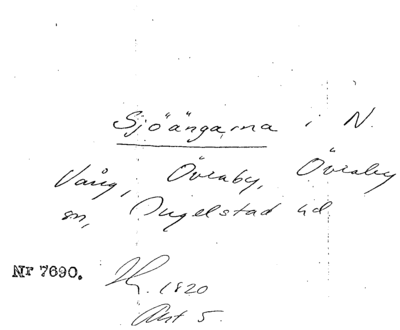 Sjöängarna i N.
Vång, Övraby, Övraby
sn, Ingelstad hd
Nr 7690. H. 1820
Akt 5.